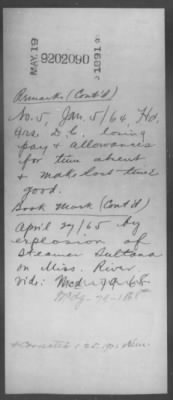 MAY. 19
9202090
1891
Remarks (Cont'd)
No. 5, Jan. 5/64, Hd.
Qrs. D.C. losing
pay & allowances
for time absent
& make lost time
good.
Book Mark (Cont'd)
April 27/65 by
explosion of
Steamer Sultana
on Miss. River.
Vide: